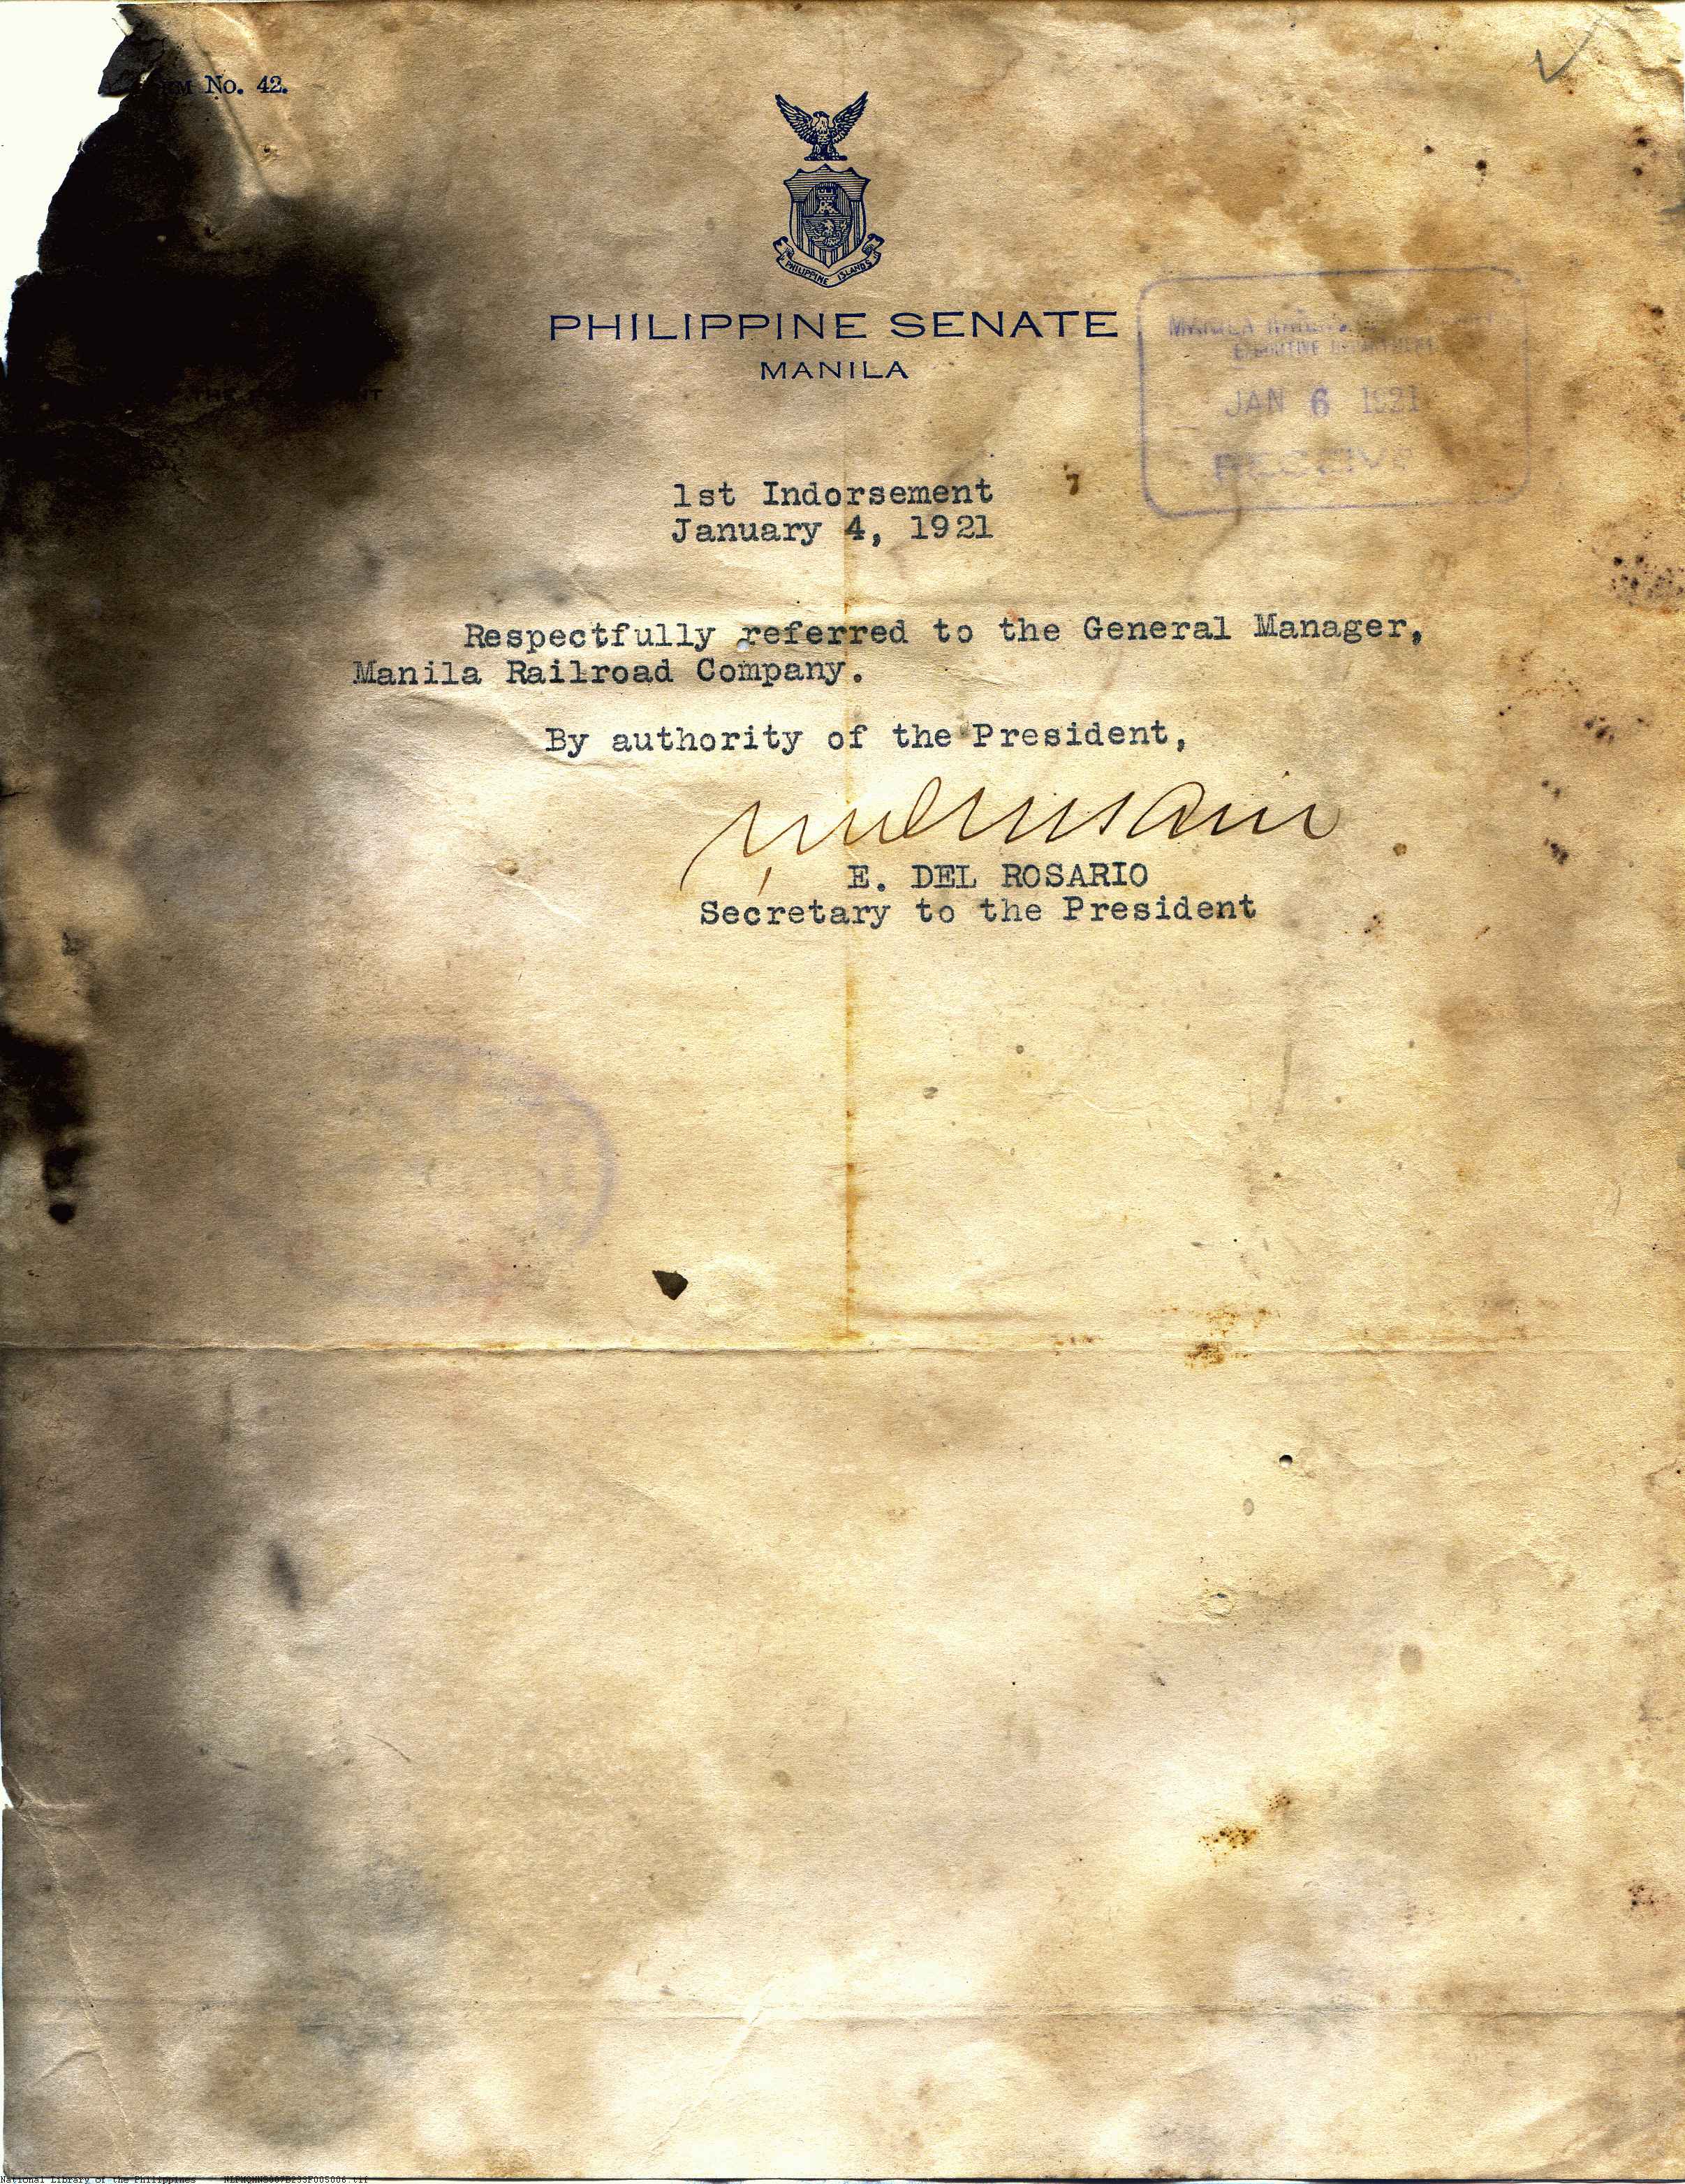 No. 42.
PHILIPPINE ISLANDS
PHILIPPINE SENATE
MANILA
MANILA
EXECUTIVE DEPARTMENT
JAN 6 1921
1st Indorsement
January 4, 1921
Respectfully referred to the General Manager,
Manila Railroad Company.
By authority of the President,
E. DEL ROSARIO
Secretary to the President
National Library of the Philippines